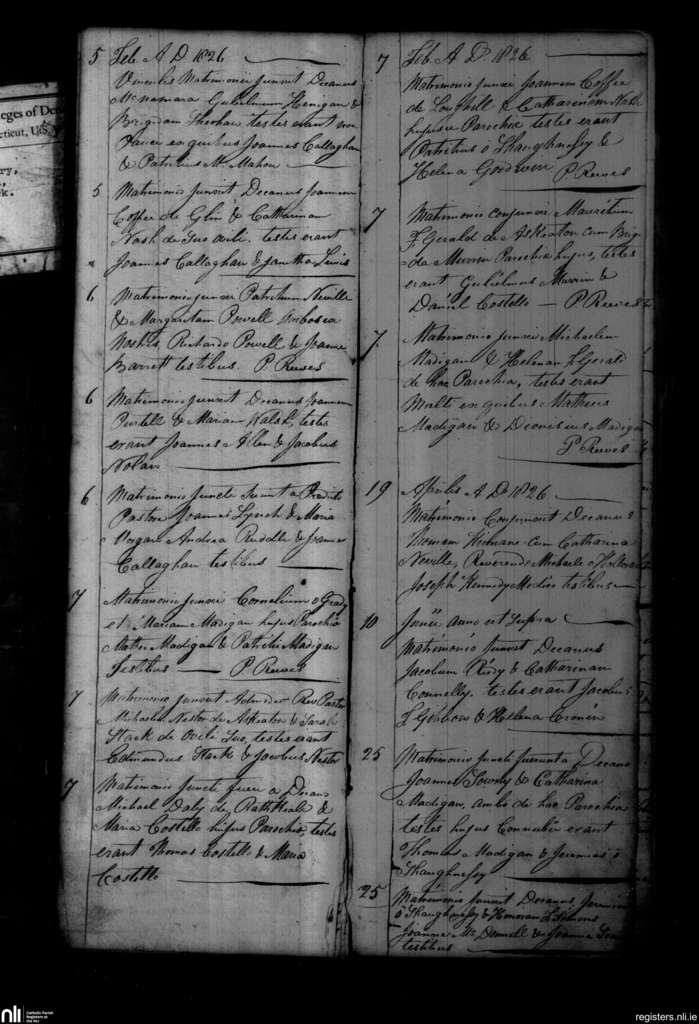 eges of De
cticut, U.S.
ry,
k.
5 Feb. A D 1826
Vinculis Matrimonii junxit Decanus
McNamara Gulielmum Henigan &
Brigidam Sheehan testes erant non
Pauci ex quibus Joannes Callaghan
& Patricius McMahon
5 Matrimonio junxit Decanus Joannem
Coffee de Glin & Catharinam
Nash de testes erant
Joannes Callaghan & Lewis
6 Matrimonio junxi Patritium Neville
& Margaritam Powell ambos ex
nostris Richardo Powell & Joanne
Barrett testibus. P Reeves
6 Matrimonio junxit Decanus Joannem
Purtell & Mariam Walsh, testes
erant Joannes Allen & Jacobus
Nolan
6 Matrimonio juncti fuerunt a
Pastore Joannes Lynch & Maria
Horgan Andrea Ruddle & Joanne
Callaghan testibus
7 Matrimonio junxi Cornelium O Grady
et Mariam Madigan hujus Parochia
Matheo Madigan & Patritio Madigan
Testibus P Reeves
7 Matrimonio junxit Rev Pastor
Michaelem Nestor de Askeaton & Sarah
Stack de testes erant
Edmundus Stack & Jacobus Nestor
7 Matrimonio juncti fuere a Decano
Michael Daly de RathKeale &
Maria Costello hujus Parochia, testes
erant Thomas Costello & Maria
Costello
7 Feb. A D. 1826
Matrimonio junxi Joannem Coffee
de Loughill & Catharinam Nash
hujusce Parochia testes erant
Patritius O Shaughnessy &
Helena Goodwin P Reeves
7 Matrimonio conjunxi Mauritium
F Gerald de Askeaton cum Brigi
=da Parochia hujus, testes
erant Gulielmus &
Daniel Costello — P Reeves
7 Matrimonio junxi Michaelem
Madigan & Helenam F Gerald
de hac Parochia, testes erant
Multi ex quibus Matheus
Madigan & Dionisius Madigan
P Reeves
19 Aprilis A D. 1826
Matrimonio Conjunxit Decanus
Kirwane cum Catharina
Neville, Reverendo Michaele
Joseph Kennedy Medico testibus
10 Junii anno ut Supra
Matrimonio junxit Decanus
Jacobum Reidy & Catharinam
Connelly. testes erant Jacobus
F Gibbon & Helena Cronin
25 Matrimonio juncti fuerunt a Decano
Joannes & Catharina
Madigan, ambo de hac Parochia
testes hujus Connubii erant
Thomas Madigan & Jeremias O
Shaughnessy
25 Matrimonio junxit Decanus Jeremiam
O Shaughnessy & Honoram
Joanne McDonnell & Joanne
testibus
nli Catholic Parish
Registers at
the NLI
registers.nli.ie